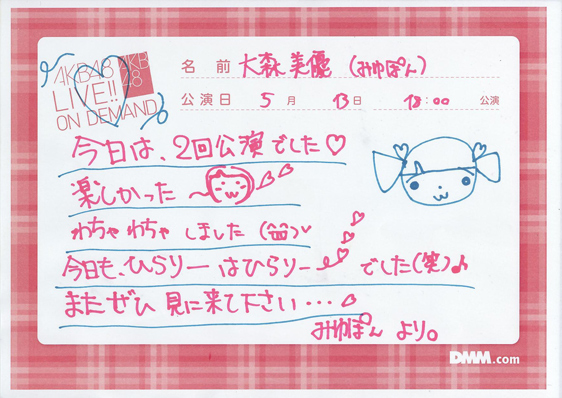 AKB48
LIVE!!
ON DEMAND
AKB
48
名前 大森美優 (みゆぽん)
公演日 5月 13日 18:00 公演
今日は、2回公演でした♡
楽しかった
わちゃわちゃ しました
今日も、ひらりー はひらりー でした(笑)♪
またぜひ 見に来て下さい…
みゆぽん より。
DMM.com